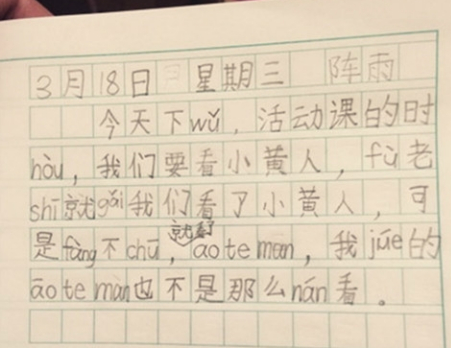 3月18日 星期三 阵雨
今天下wǔ,活动课的时
hòu,我们要看小黄人,fù老
shī就gǎi我们看了小黄人,可
是fàng不chū,就看了āo te màn,我júe的
āo te màn也不是那么nán看。